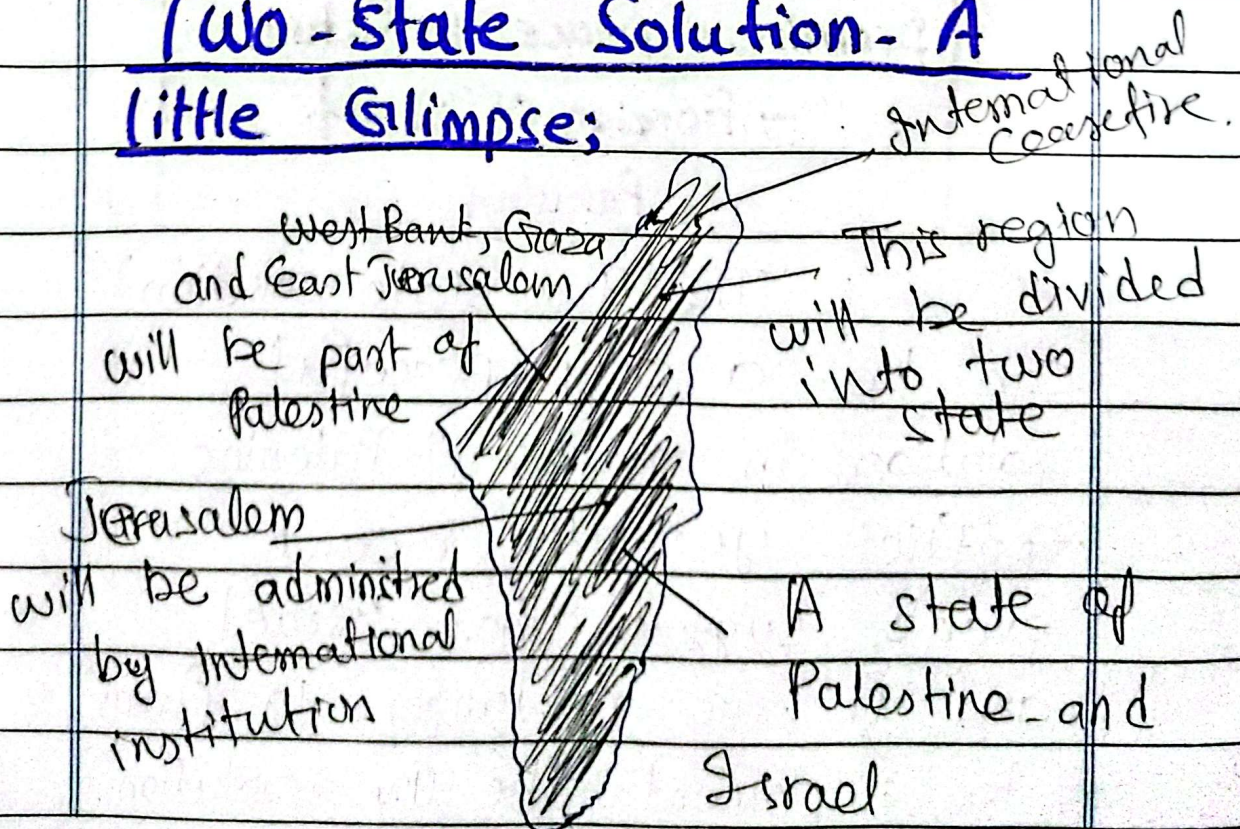 Two-State Solution- A
little Glimpse;
International
Ceasefire.
West Bank, Gaza
and East Jerusalem
will be part of
Palestine
This region
will be divided
into two
state
Jerusalem
will be adminstred
by International
institution
A state of
Palestine and
Israel